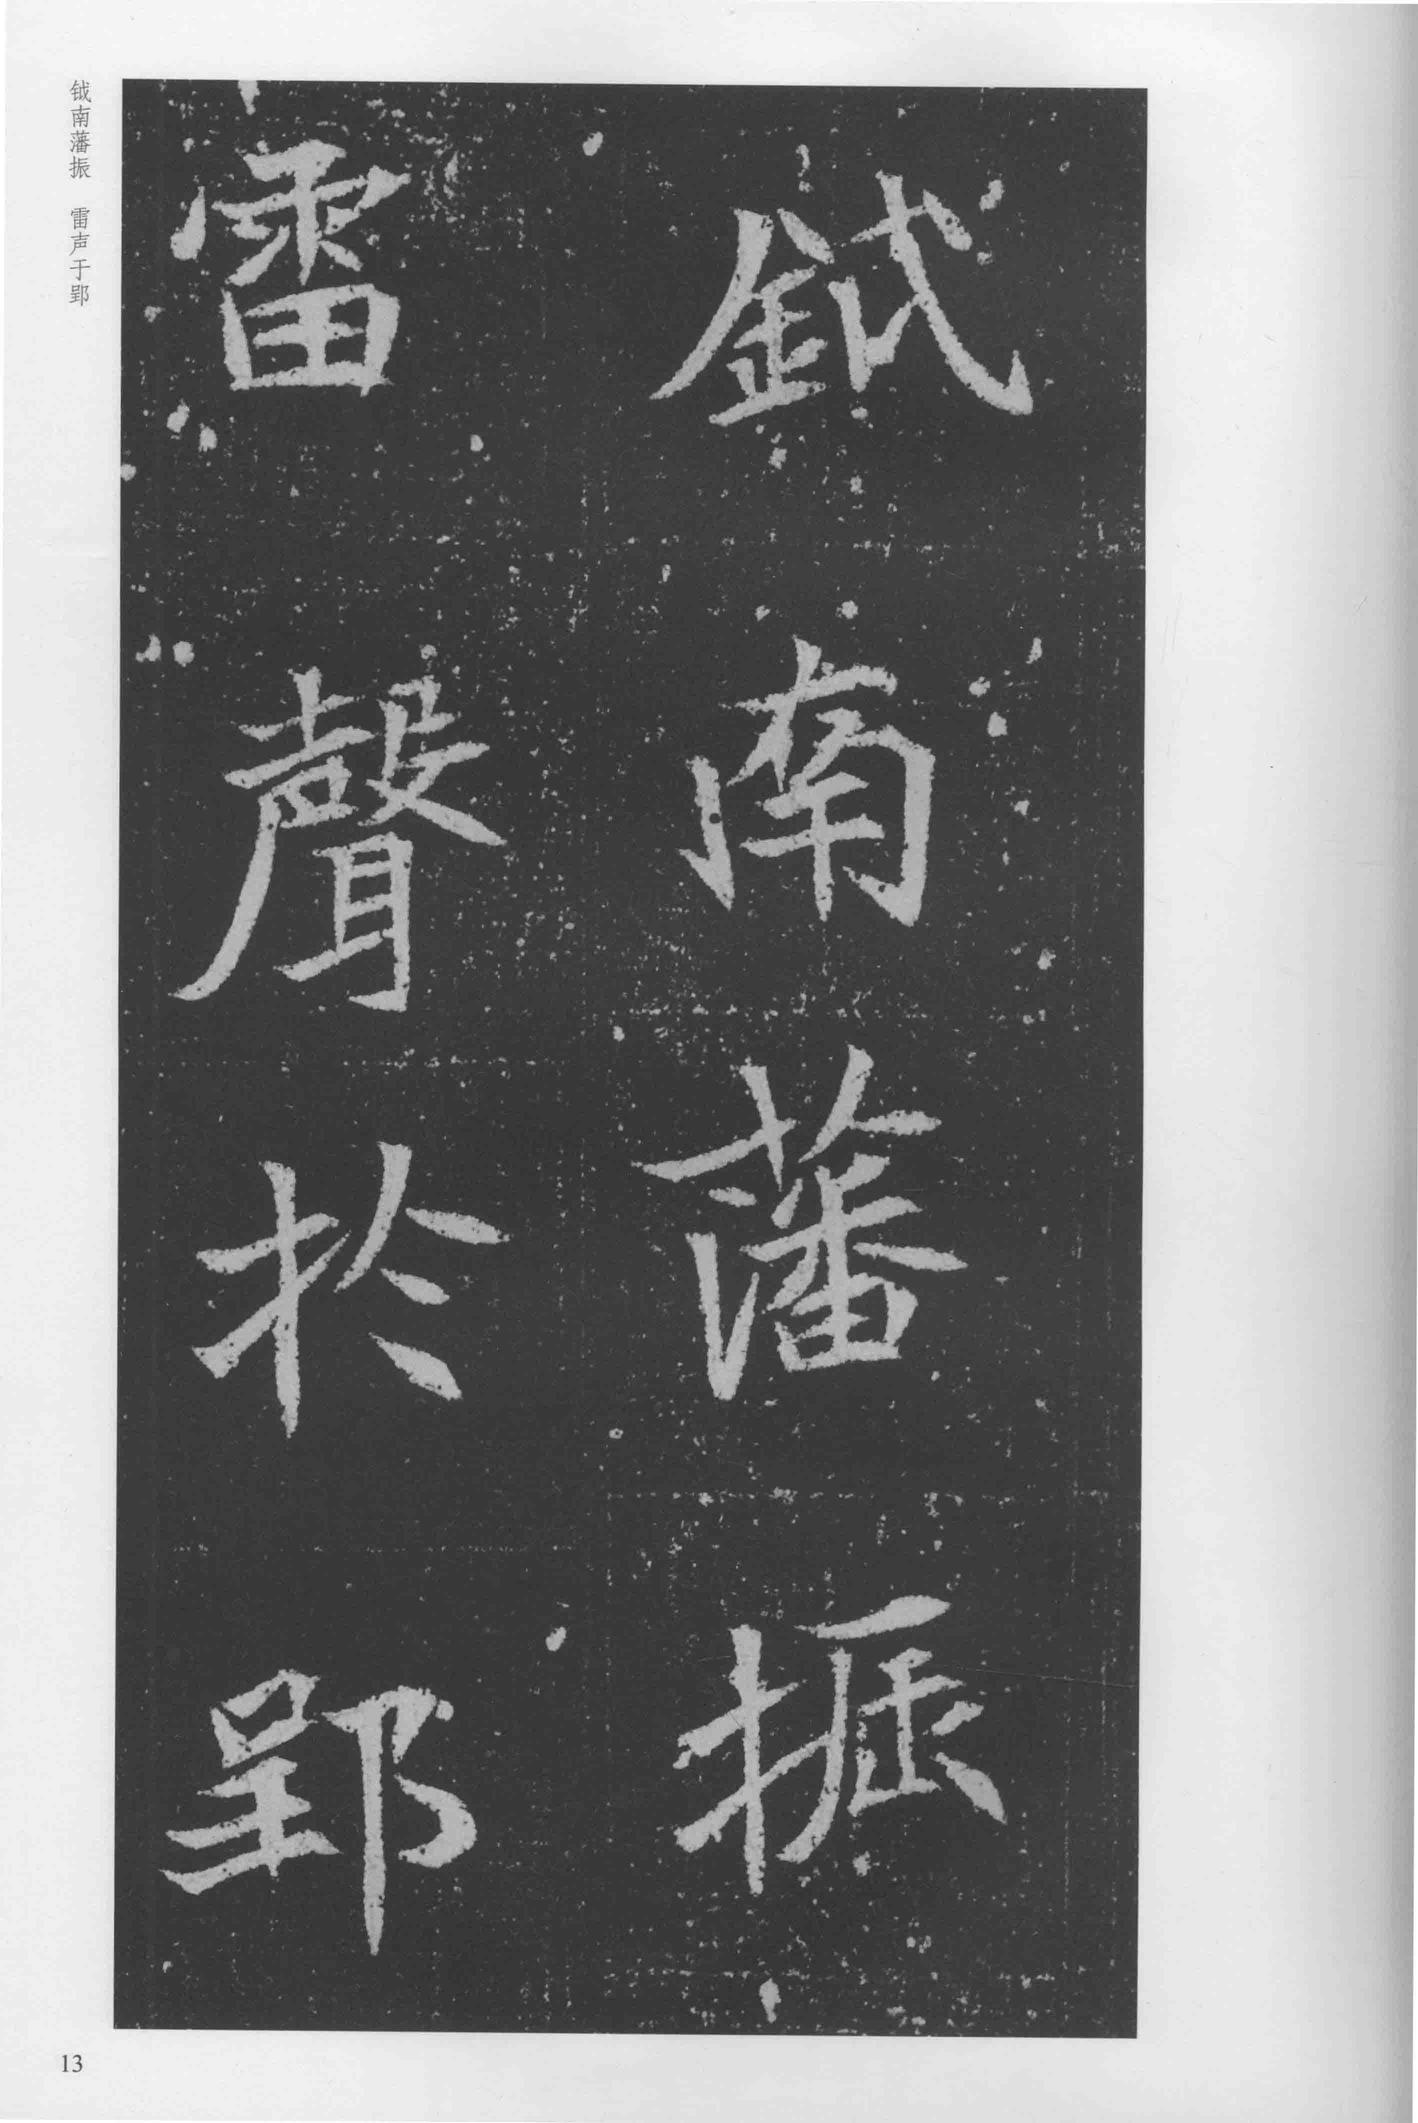 鉞南藩振
雷聲於郢
钺南藩振 雷声于郢
13